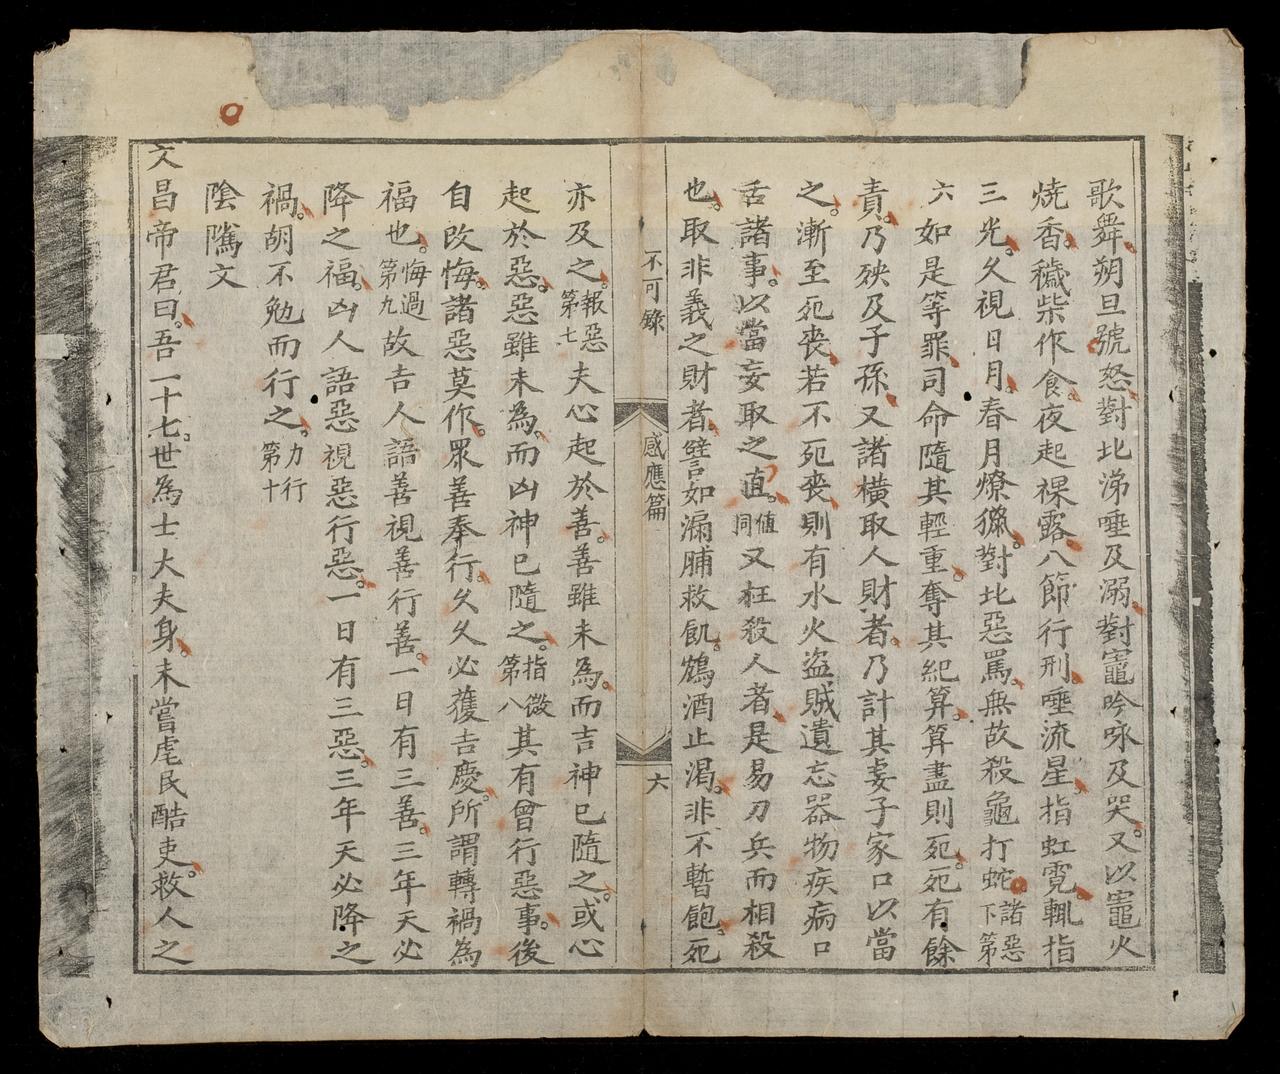 歌舞。朔旦號怒。對北涕唾及溺。對竈吟咏及哭。又以竈火
燒香。穢柴作食。夜起裸露。八節行刑。唾流星。指虹霓。輒指
三光。久視日月。春月燎獵。對北惡罵。無故殺龜打蛇。諸惡下第
六如是等罪。司命隨其輕重。奪其紀算。算盡則死。死有餘
責。乃殃及子孫。又諸橫取人財者。乃計其妻子家口以當
之。漸至死喪。若不死喪。則有水火盜賊。遺忘器物。疾病口
舌諸事。以當妄取之直。值同又枉殺人者。是易刀兵而相殺
也。取非義之財者。譬如漏脯救飢。鴆酒止渴。非不暫飽。死
不可錄
感應篇
六
亦及之。報惡第七夫心起於善。善雖未為。而吉神已隨之。或心
起於惡。惡雖未為。而凶神已隨之。指微第八其有曾行惡事。後
自改悔。諸惡莫作。眾善奉行。久久必獲吉慶。所謂轉禍為
福也。悔過第九故吉人語善視善行善。一日有三善。三年天必
降之福。凶人語惡視惡行惡。一日有三惡。三年天必降之
禍。胡不勉而行之。力行第十
陰騭文
文昌帝君曰。吾一十七世為士大夫身。未嘗虐民酷吏。救人之